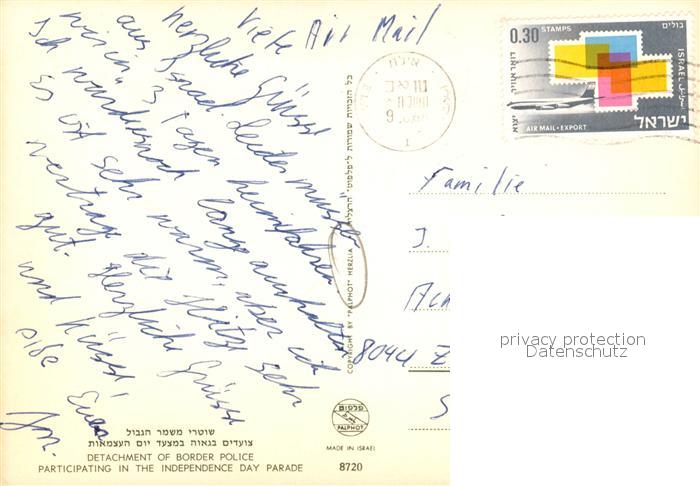 Air Mail
Viele
herzliche Grüsse
aus Israel. Leider müssen
wir in 3 Tagen heimfahren
Ich würde noch lang aushalten
Es ist sehr warm aber ich
vertrage die Hitze sehr
gut. Herzliche Grüsse
und Küsse
Euer
0.30 STAMPS
בולים
דואר אוויר
יצוא
ISRAEL
ישראל
AIR MAIL • EXPORT
אילת
Familie
J.
8044 Z
S
privacy protection
Datenschutz
כל הזכויות שמורות ל"פלפוט" הרצליה
COPYRIGHT BY "PALPHOT" HERZLIA
שוטרי משמר הגבול
צועדים בגאוה במצעד יום העצמאות
DETACHMENT OF BORDER POLICE
PARTICIPATING IN THE INDEPENDENCE DAY PARADE
פלפוט
PALPHOT
MADE IN ISRAEL
8720